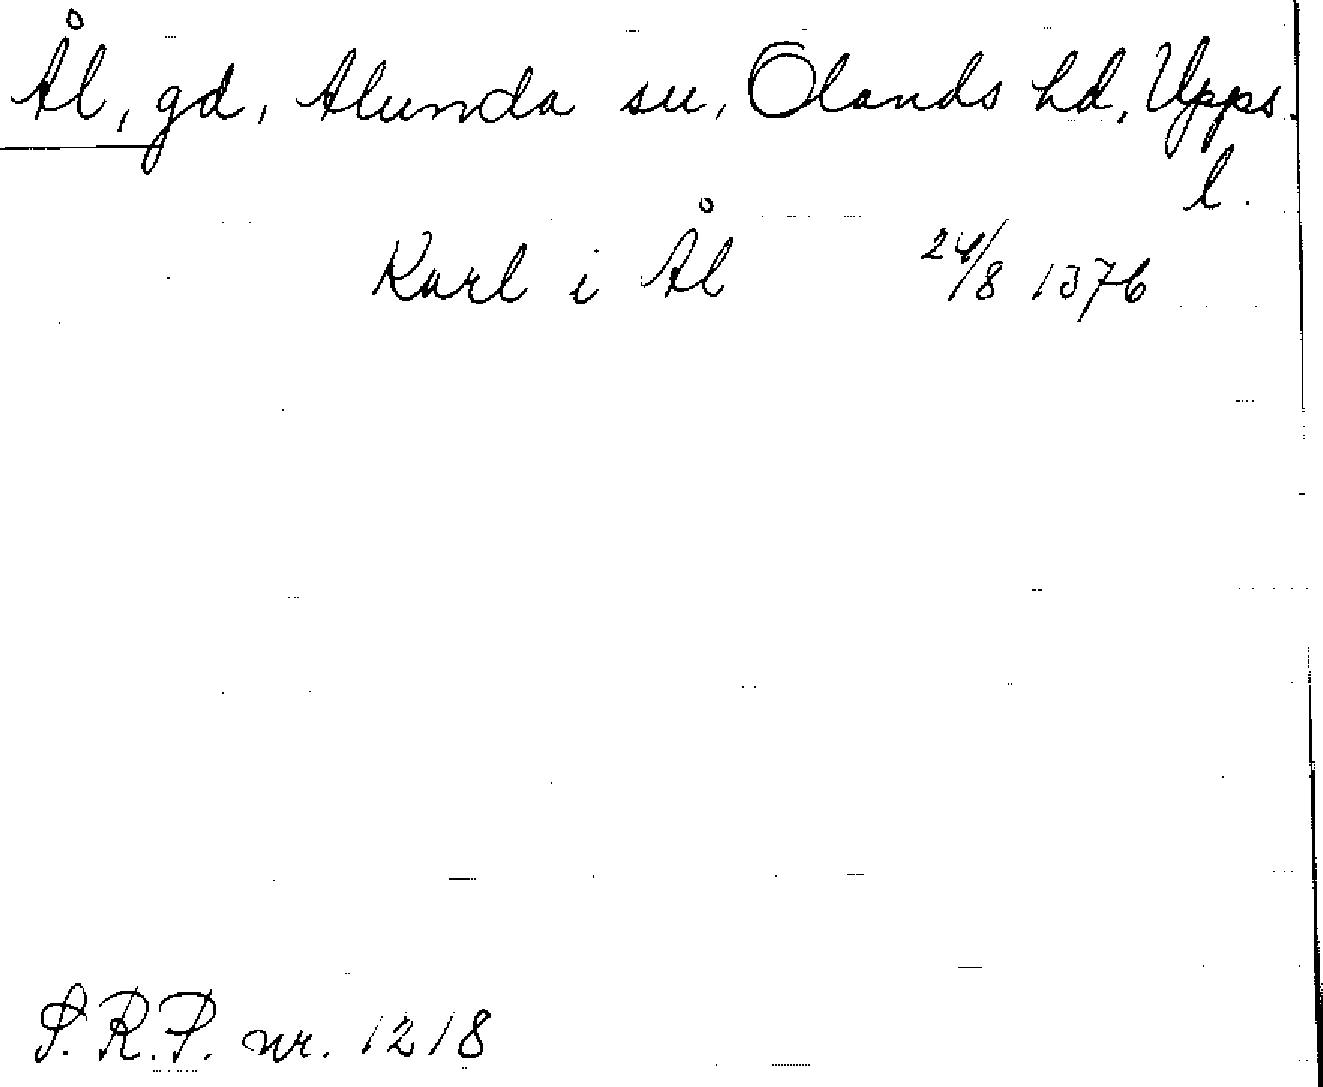 Ål, gd, Alunda sn, Olands hd, Upps.
l.
Karl i Ål 24/8 1376
S.R.P. nr. 1218